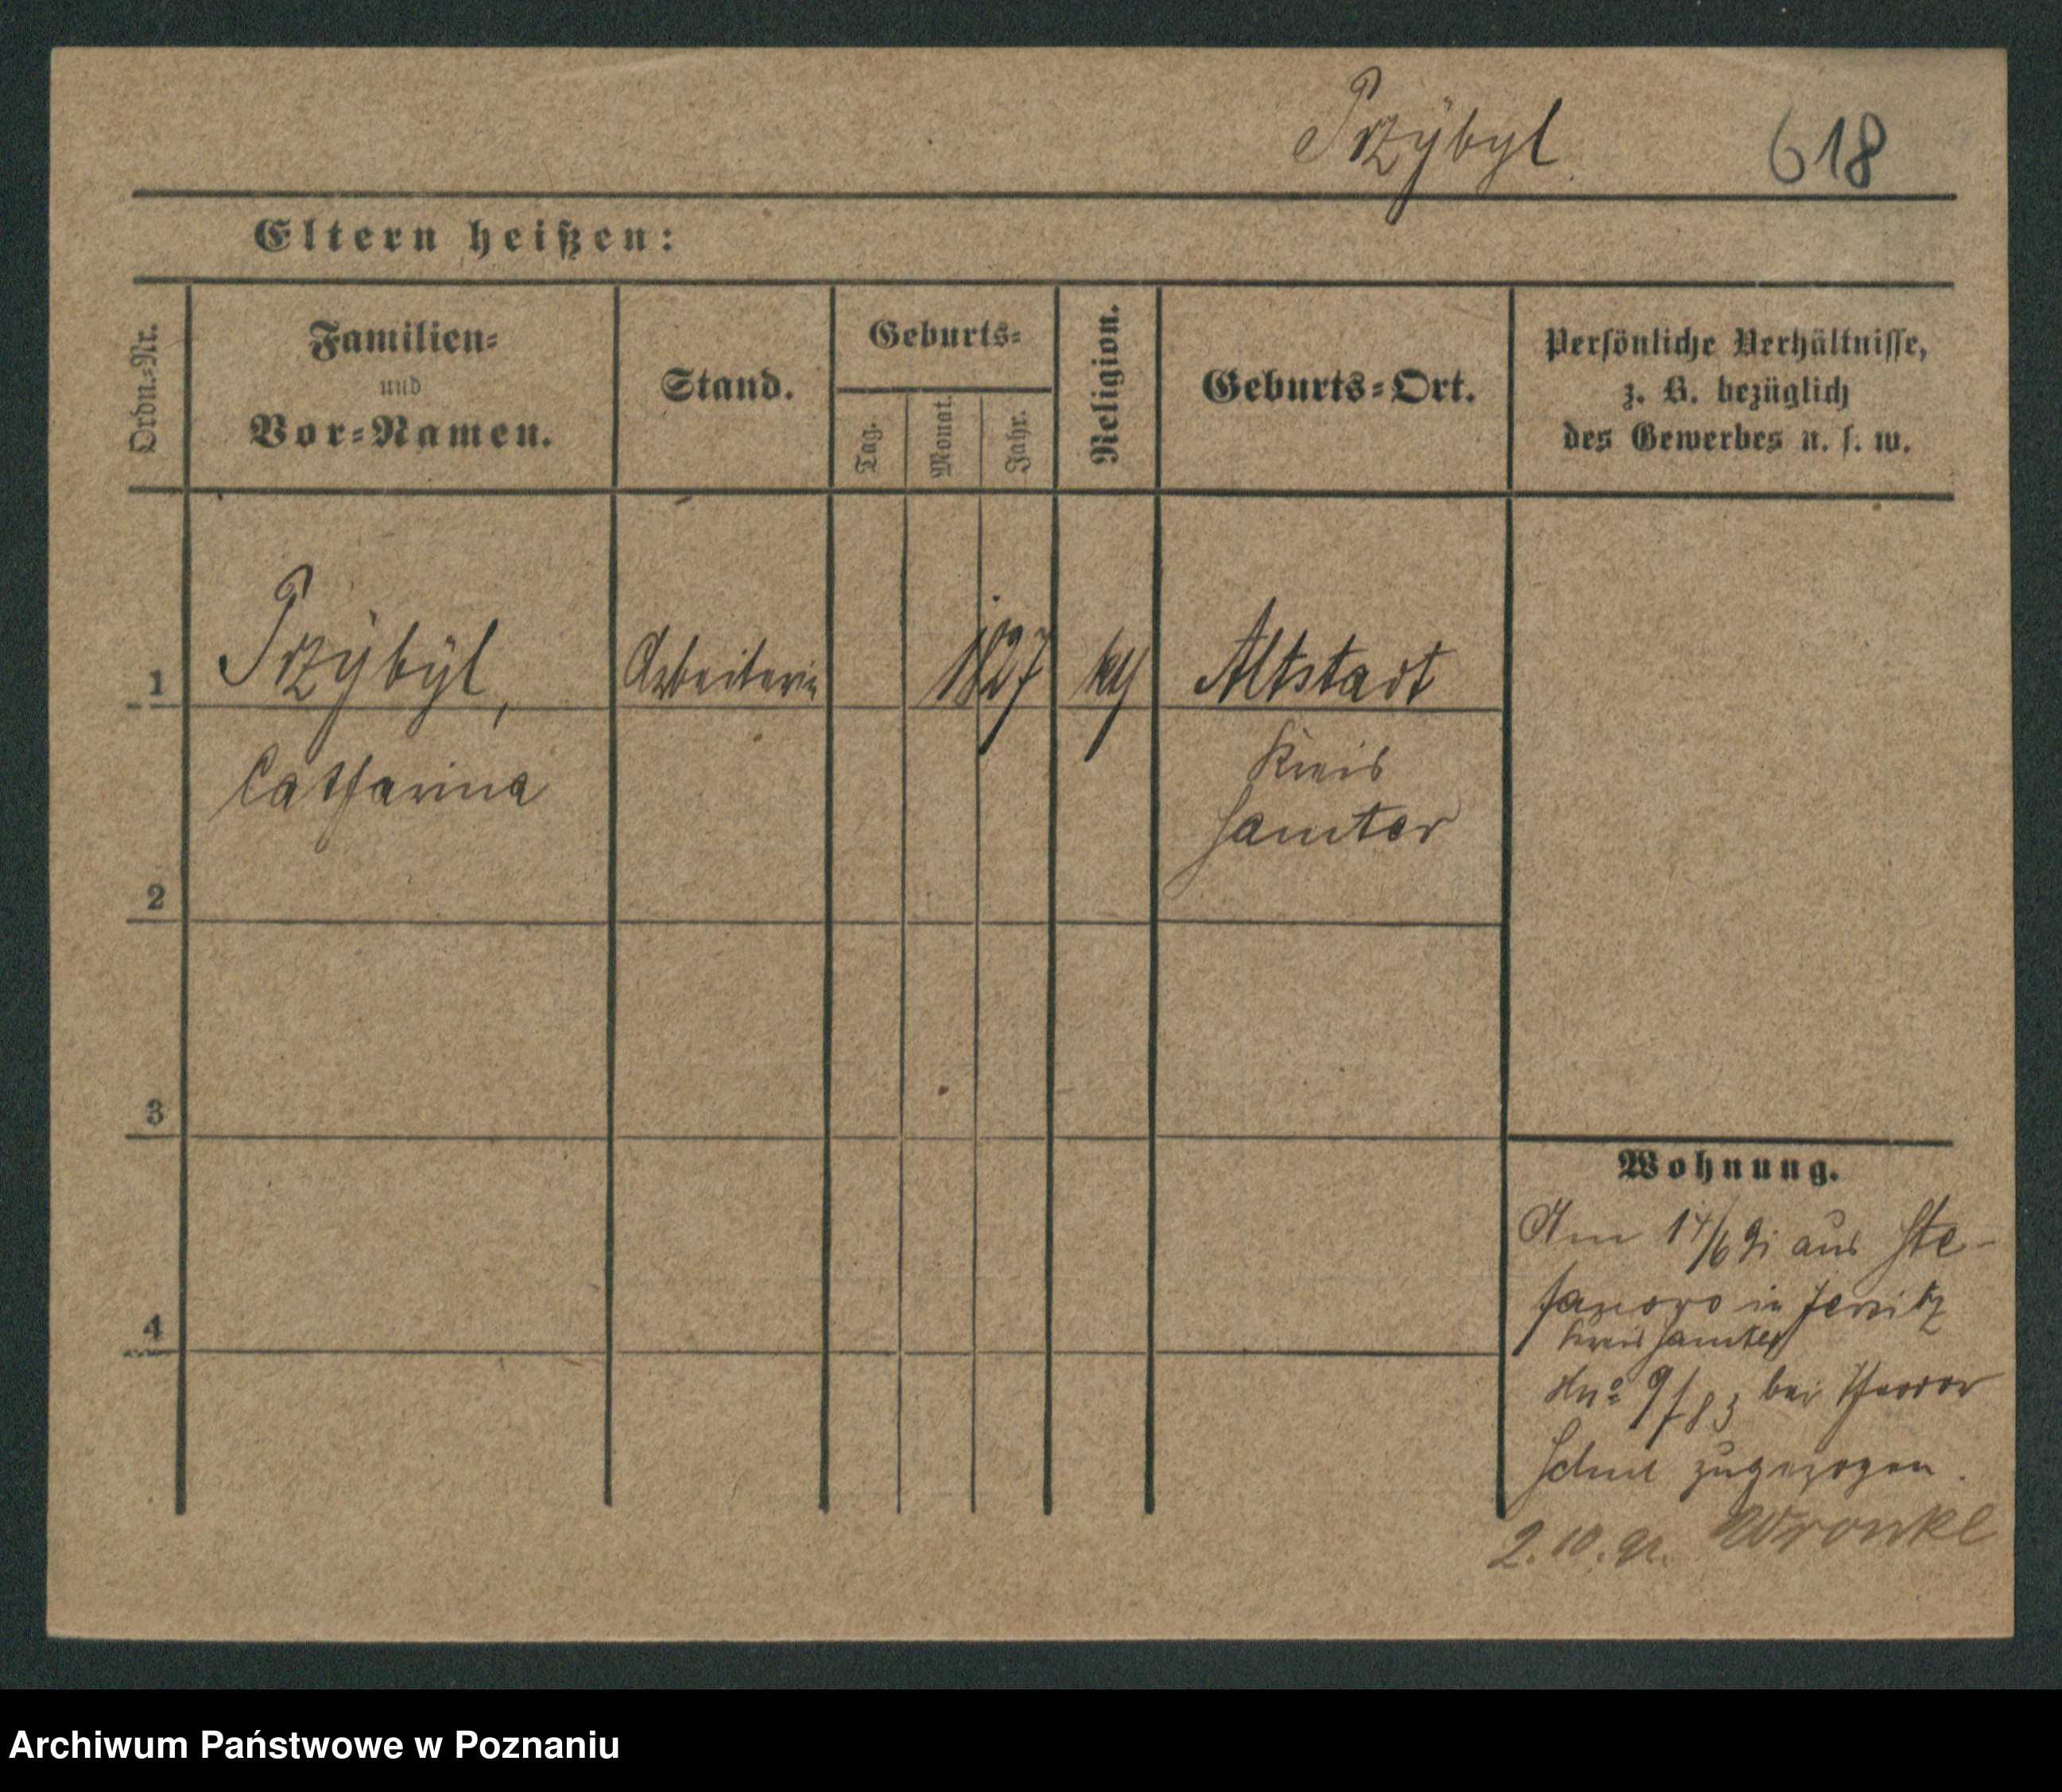 Przÿbyl 618
Eltern heißen:
Ordn.=Nr.
Familien=
und
Vor=Namen.
Stand.
Geburts=
Tag.
Monat.
Jahr.
Religion.
Geburts=Ort.
Persönliche Verhältnisse,
z. B. bezüglich
des Gewerbes u. s. w.
1 Przÿbÿl, Arbeiterin 1827 Altstadt
Catharina Kreis
Samter
2
3
4
Wohnung.
Am 14/6 91 aus Ste-
in Jersitz
Kreis Samter
bei
zugezogen.
2.10.91. Wronke
Archiwum Państwowe w Poznaniu